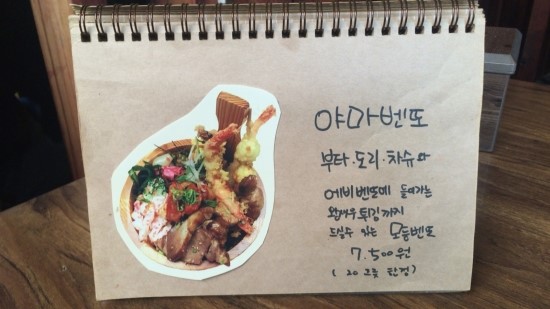 야마벤또
부타·도리·차슈와
에비벤또에 들어가는
왕새우튀김까지
드실수 있는 모듬벤또
7.500원
(20그릇 한정)